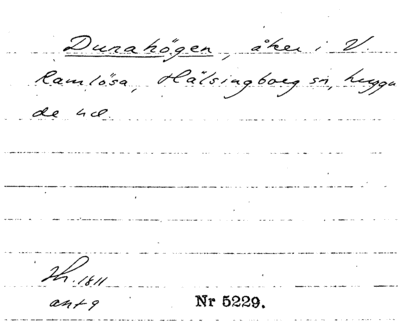 Durahögen, åker i V.
Ramlösa, Hälsingborg sn, Luggu
de hd.
1811
ant 9
Nr 5229.